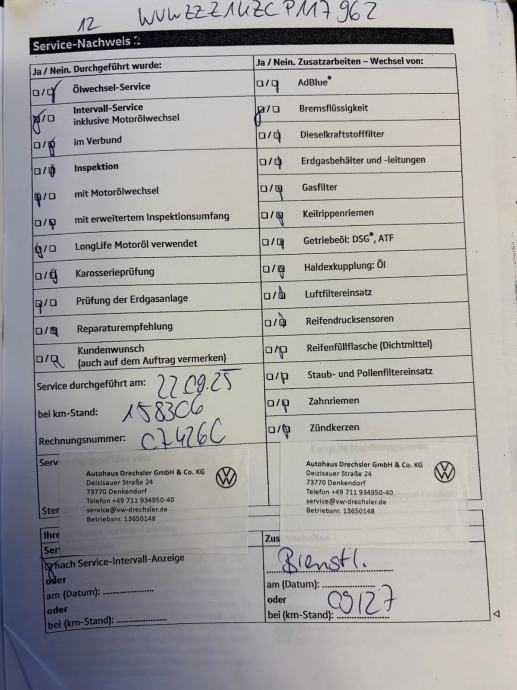 12 WVWZZZ1KZCP117962
Service-Nachweis
Ja / Nein. Durchgeführt wurde:
Ölwechsel-Service
Intervall-Service
inklusive Motorölwechsel
im Verbund
Inspektion
mit Motorölwechsel
mit erweitertem Inspektionsumfang
LongLife Motoröl verwendet
Karosserieprüfung
Prüfung der Erdgasanlage
Reparaturempfehlung
Kundenwunsch
(auch auf dem Auftrag vermerken)
Service durchgeführt am: 22.09.25
bei km-Stand:
Rechnungsnummer:
Serv
Autohaus Drechsler GmbH & Co. KG
Deizisauer Straße 24
73770 Denkendorf
Telefon +49 711 934950-40
service@vw-drechsler.de
Betriebsnr. 13650148
Stem
Ihre
Ser
nach Service-Intervall-Anzeige
oder
am (Datum):
oder
bei (km-Stand):
Ja / Nein. Zusatzarbeiten – Wechsel von:
AdBlue®
Bremsflüssigkeit
Dieselkraftstofffilter
Erdgasbehälter und -leitungen
Gasfilter
Keilrippenriemen
Getriebeöl: DSG®, ATF
Haldexkupplung: Öl
Luftfiltereinsatz
Reifendrucksensoren
Reifenfüllflasche (Dichtmittel)
Staub- und Pollenfiltereinsatz
Zahnriemen
Zündkerzen
Autohaus Drechsler GmbH & Co. KG
Deizisauer Straße 24
73770 Denkendorf
Telefon +49 711 934950-40
service@vw-drechsler.de
Betriebsnr. 13650148
Zus
am (Datum):
oder 09/27
bei (km-Stand):